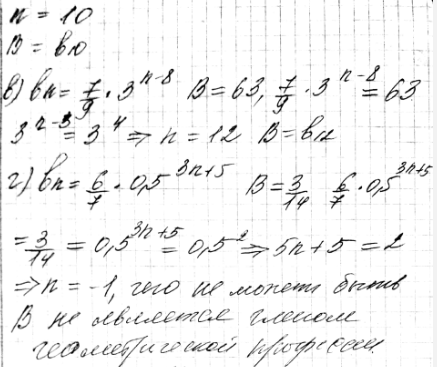 n = 10
B = b10
в) bn = 7/9 · 3^(n-8) B = 63, 7/9 · 3^(n-8) = 63
3^(n-8) = 3^4 ⇒ n = 12 B = b12
г) bn = 6/7 · 0,5^(3n+5) B = 3/14 6/7 · 0,5^(3n+5)
= 3/14 = 0,5^(3n+5) = 0,5^2 ⇒ 5n + 5 = 2
⇒ n = -1, чего не может быть
B не является членом
геометрической прогрессии.